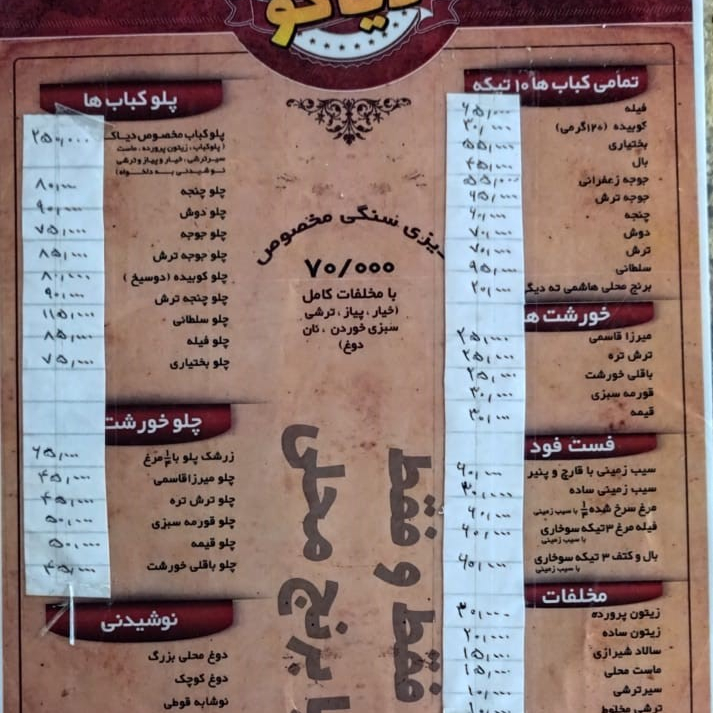 دیاکو
تمامی کباب ها ۱۰ تیکه
فیله ۶۵,۰۰۰
کوبیده (۱۲۰گرمی) ۳۰,۰۰۰
بختیاری ۵۵,۰۰۰
بال ۴۵,۰۰۰
جوجه زعفرانی ۵۵,۰۰۰
جوجه ترش
چنجه ۶۰,۰۰۰
دوش ۷۰,۰۰۰
ترش ۷۰,۰۰۰
سلطانی ۹۵,۰۰۰
برنج محلی هاشمی ته دیگ ۲۰,۰۰۰
خورشت ها
میرزا قاسمی ۲۵,۰۰۰
ترش تره ۲۵,۰۰۰
باقلی خورشت ۲۵,۰۰۰
قورمه سبزی ۳۰,۰۰۰
قیمه ۳۰,۰۰۰
فست فود
سیب زمینی با قارچ و پنیر ۶۰,۰۰۰
سیب زمینی ساده ۳۰,۰۰۰
مرغ سرخ شده ۱/۴ با سیب زمینی ۶۰,۰۰۰
فیله مرغ ۳ تیکه سوخاری ۶۰,۰۰۰
با سیب زمینی
بال و کتف ۳ تیکه سوخاری ۶۰,۰۰۰
با سیب زمینی
مخلفات
زیتون پرورده ۳۰,۰۰۰
زیتون ساده ۲۰,۰۰۰
سالاد شیرازی ۱۵,۰۰۰
ماست محلی ۱۵,۰۰۰
سیرترشی ۱۰,۰۰۰
ترشی مخلوط ۱۰,۰۰۰
دیزی سنگی مخصوص
۷۰/۰۰۰
با مخلفات کامل
(خیار ، پیاز ، ترشی
سبزی خوردن ، نان
دوغ)
فقط و فقط
با برنج محلی
پلو کباب ها
پلوکباب مخصوص دیاکو ۲۵۰,۰۰۰
(پلوکباب ، زیتون پرورده ، ماست
سیرترشی ، خیار و پیاز و ترشی
نوشیدنی به دلخواه)
چلو چنجه ۸۰,۰۰۰
چلو دوش ۹۰,۰۰۰
چلو جوجه ۷۵,۰۰۰
چلو جوجه ترش ۸۵,۰۰۰
چلو کوبیده (دوسیخ) ۸۰,۰۰۰
چلو چنجه ترش ۹۰,۰۰۰
چلو سلطانی ۱۱۵,۰۰۰
چلو فیله ۸۵,۰۰۰
چلو بختیاری ۷۵,۰۰۰
چلو خورشت
زرشک پلو با ۱/۴ مرغ ۶۵,۰۰۰
چلو میرزاقاسمی ۴۵,۰۰۰
چلو ترش تره ۴۵,۰۰۰
چلو قورمه سبزی ۵۰,۰۰۰
چلو قیمه ۵۰,۰۰۰
چلو باقلی خورشت ۴۵,۰۰۰
نوشیدنی
دوغ محلی بزرگ
دوغ کوچک
نوشابه قوطی